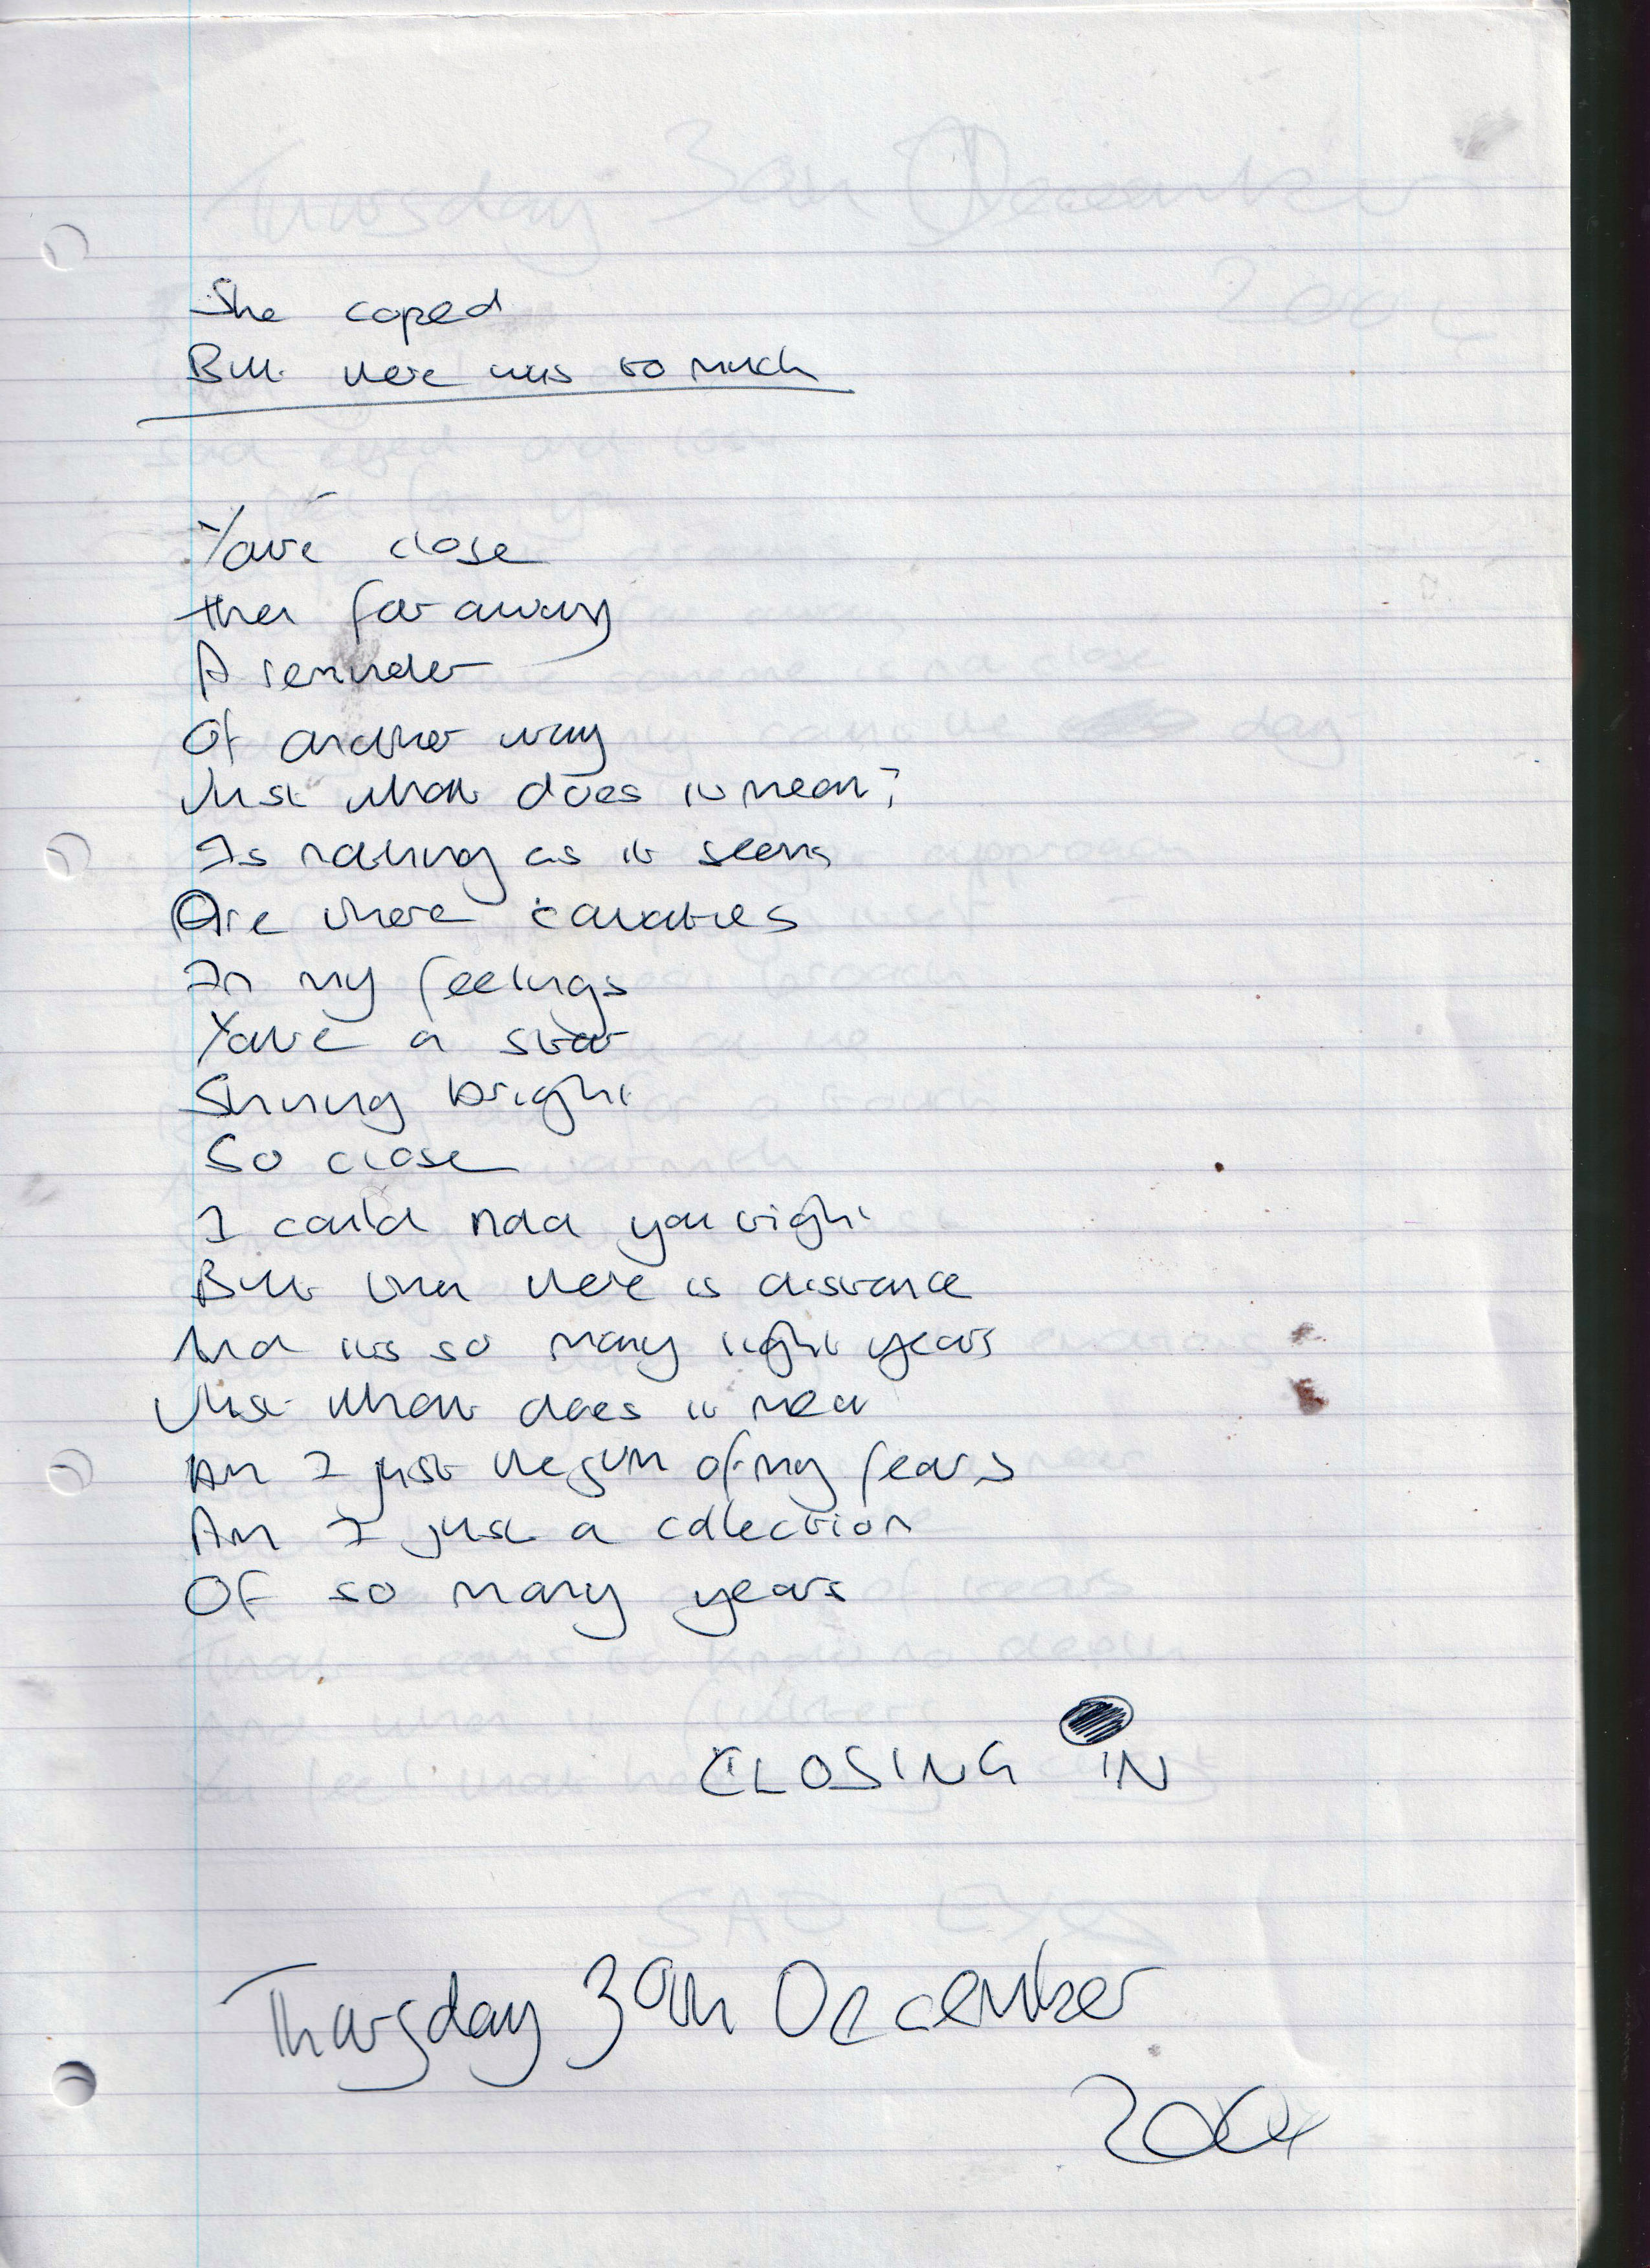 She coped
But there was so much
Your'e close
then far away
A reminder
Of another way
Just what does it mean?
Is nothing as it seems
Are there cavaties
In my feelings
Your'e a star
Shining bright
So close
I could hold you tight
But then there is distance
And its so many light years
Just what does it mean
Am I just the sum of my fears
Am I just a collection
Of so many years
CLOSING IN
Thursday 30th December
2004